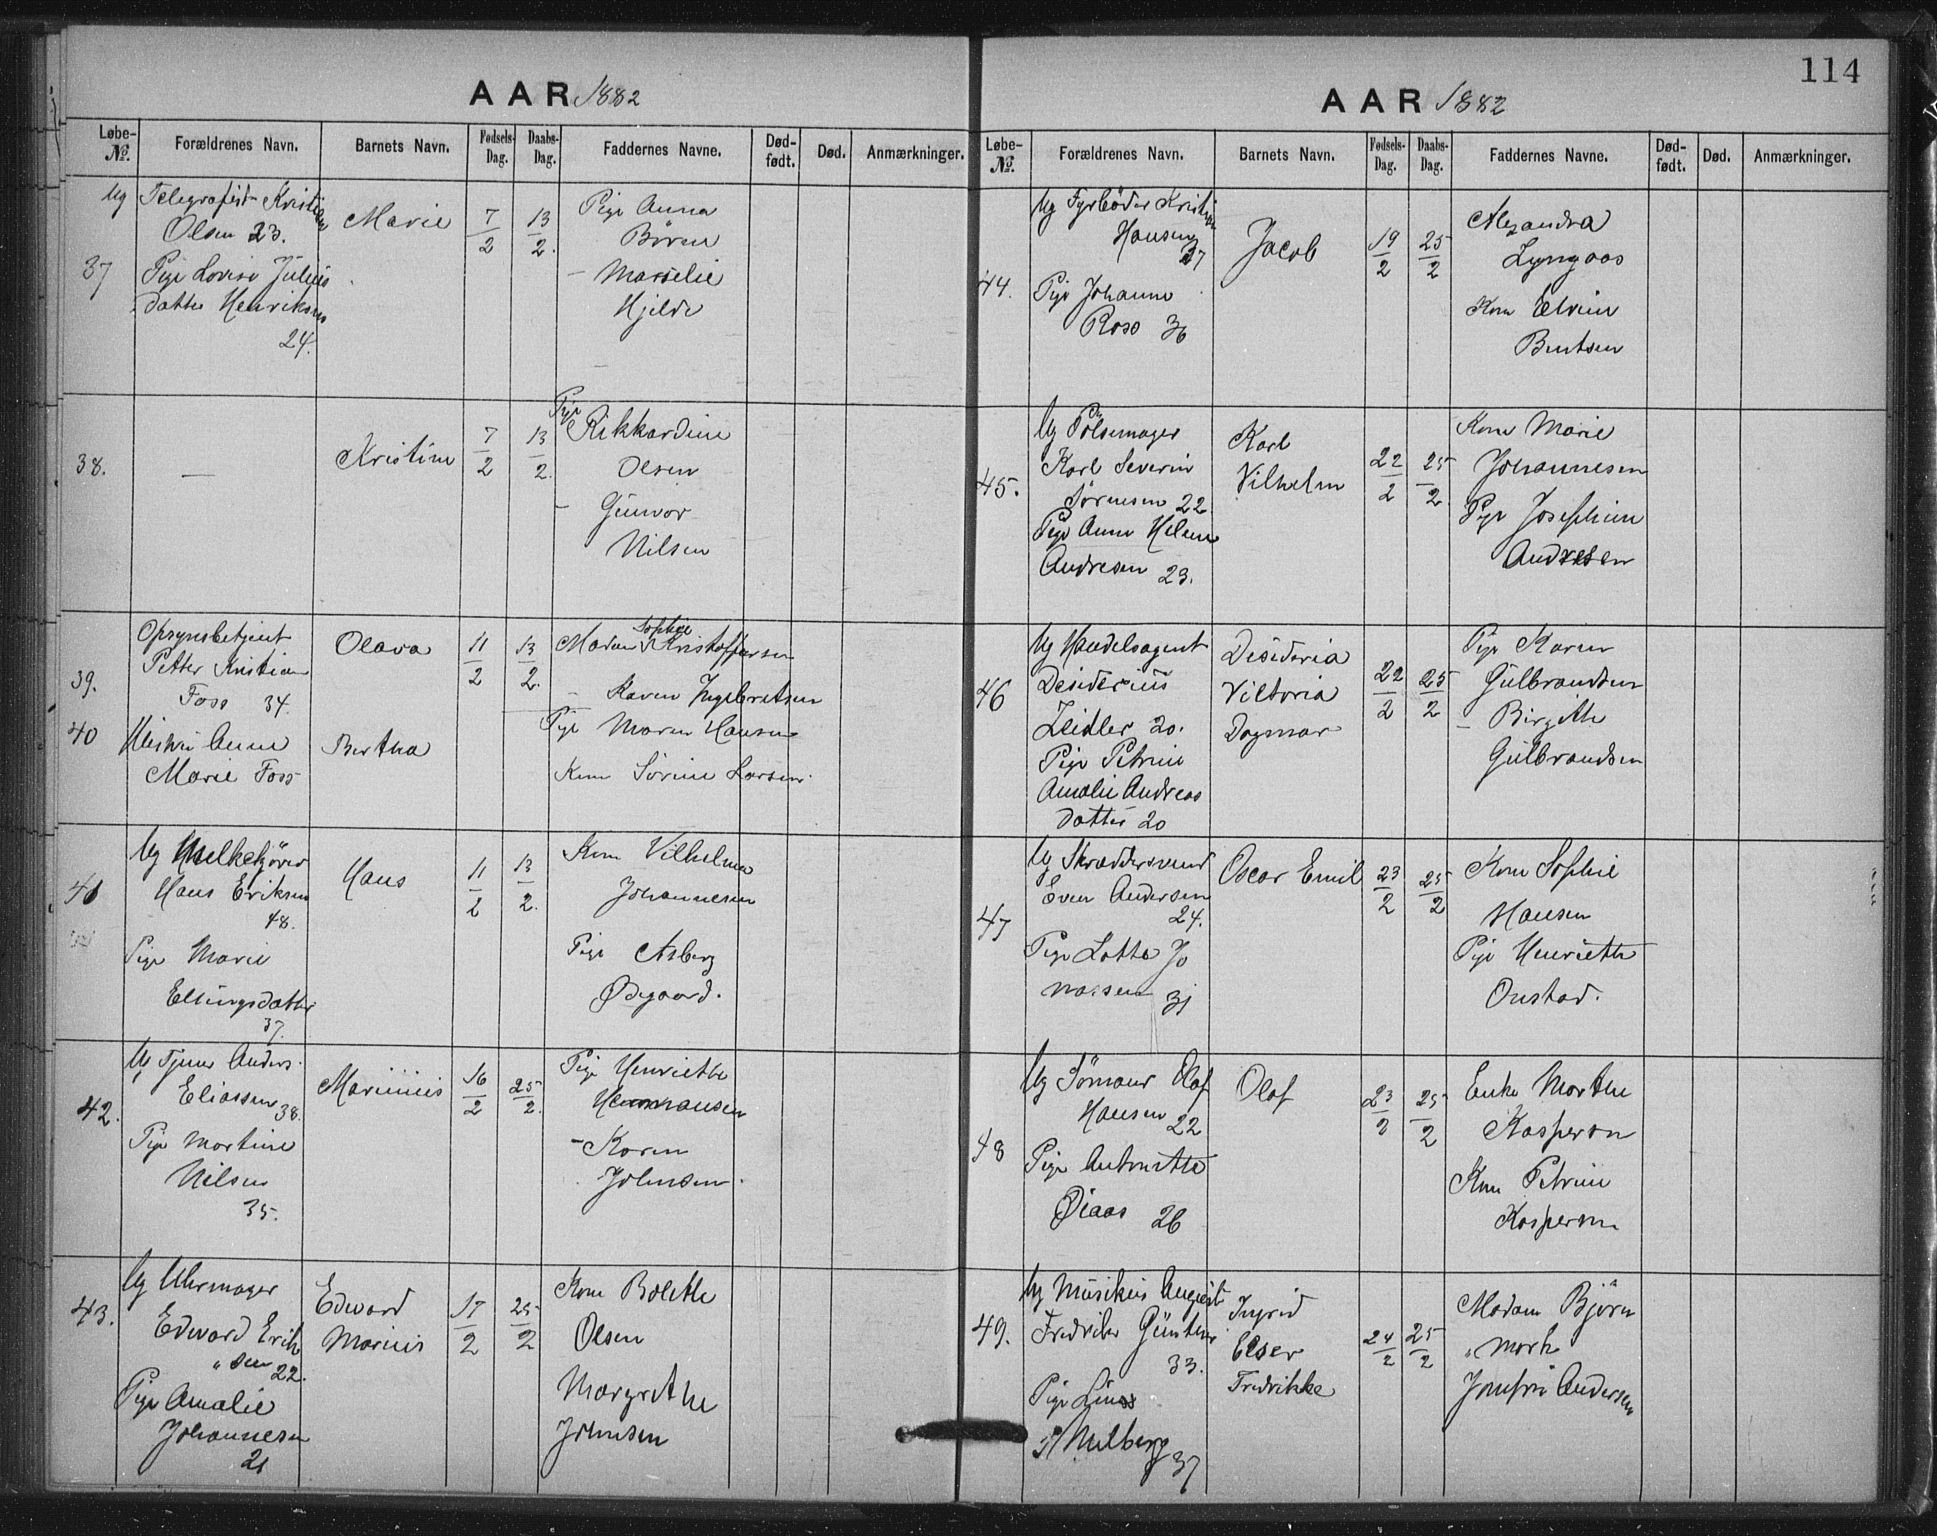 AAR 1882
Løbe-
№.
Forældrenes Navn.
Barnets Navn.
Fødsels-
Dag.
Daabs-
Dag.
Faddernes Navne.
Død-
født.
Død.
Anmærkninger.
37
Ug Telegrafist Kristian
Olsen 23.
Pige Lovise Julius
datter Henriksen
24.
Marie
7/2
13/2.
Pige Anna
Büren
— Marselie
Hjelde
38.
—
Kristine
7/2
13/2.
Pige Rikkardine
Olsen
— Gunvor
Nilsen
39.
40
Opsynsbetjent
Petter Kristian
Foss 34.
Hustru Anne
Marie Foss
Olava
Bertha
11/2
13/2.
Madam Sophie Kristoffersen
— Karen Ingebretsen
Pige Maren Hansen
Kone Sørine Larsen.
41
Ug Melkekjører
Hans Eriksen
48.
Pige Marie
Ellingsdatter
37.
Hans
11/2
13/2.
Kone Vilhelmine
Johannesen
Pige Asberg
Ødegaard.
42.
Ug Tjener Anders
Eliassen 38.
Pige Martine
Nilsen
35.
Marinius
16/2
25/2.
Pige Henriette
Hermansen
— Karen
Johnsen.
43.
Ug Uhrmager
Edvard Erik
"sen 22.
Pige Amalie
Johannesen
21
Edvard
Marius
17/2
25/2
Kone Bolette
Olsen
Margrethe
Johnsen
114
AAR 1882
Løbe-
№.
Forældrenes Navn.
Barnets Navn.
Fødsels-
Dag.
Daabs-
Dag.
Faddernes Navne.
Død-
født.
Død.
Anmærkninger.
44.
Ug Fyrbøder Kristian
Hansen
27
Pige Johanne
Ross 36
Jacob
19/2
25/2
Alexandra
Lyngaas
Kone Elvine
Bentsen
45.
Ug Pølsemager
Karl Severin
Sørensen 22
Pige Anne Helene
Andresen 23.
Karl
Vilhelm
22/2
25/2
Kone Marie
Johannesen
Pige Josephine
Andresen
46
Ug Handelsagent
Desiderius
Zeidler 20.
Pige Petrine
Amalie Andreas
datter 20
Desideria
Viktoria
Dagmar
22/2
25/2
Pige Karen
Gulbrandsen
— Birgithe
Gulbrandsen
47
Ug Skræddersvend
Sven Andersen
24.
Pige Lotta Jo
nassen 31
Oscar Emil
23/2
25/2
Kone Sophie
Hansen
Pige Henriette
Onstad.
48
Ug Sømand Olaf
Hansen 22
Pige Antonette
Øiaas 26
Olaf
23/2
25/2
Enke Marthe
Kaspersen
Kone Petrine
Kaspersen
49.
Ug Musikus August
Fredrik Günther
33.
Pige Lina
Mulberg 37
Ingrid
Elser
Fredrikke
24/2
25/2
Madam Bjørn
"mork
Jomfru Andersen